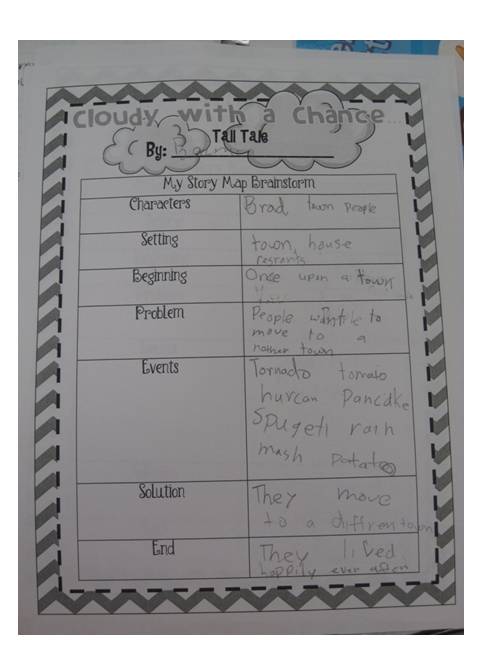 Cloudy with a Chance...
Tall Tale
By:
My Story Map Brainstorm
Characters
Brad town People
Setting
town, house
restrants
Beginning
Once upon a town
Problem
People to
move to a
nother town
Events
Tornado tomato
hurcan Pancake
Spugeti rain
mash Potato
Solution
They move
to a diffren town
End
They lived
happily ever after